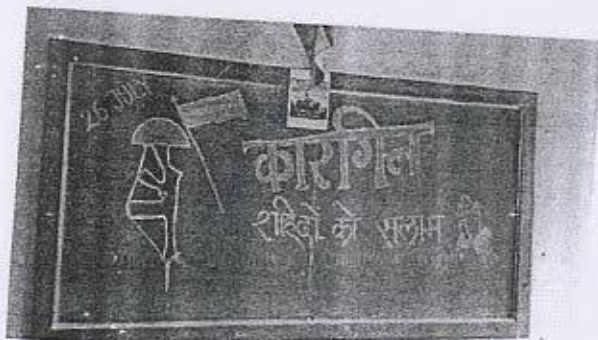 26 JULY
कारगिल
शहिदों को सलाम